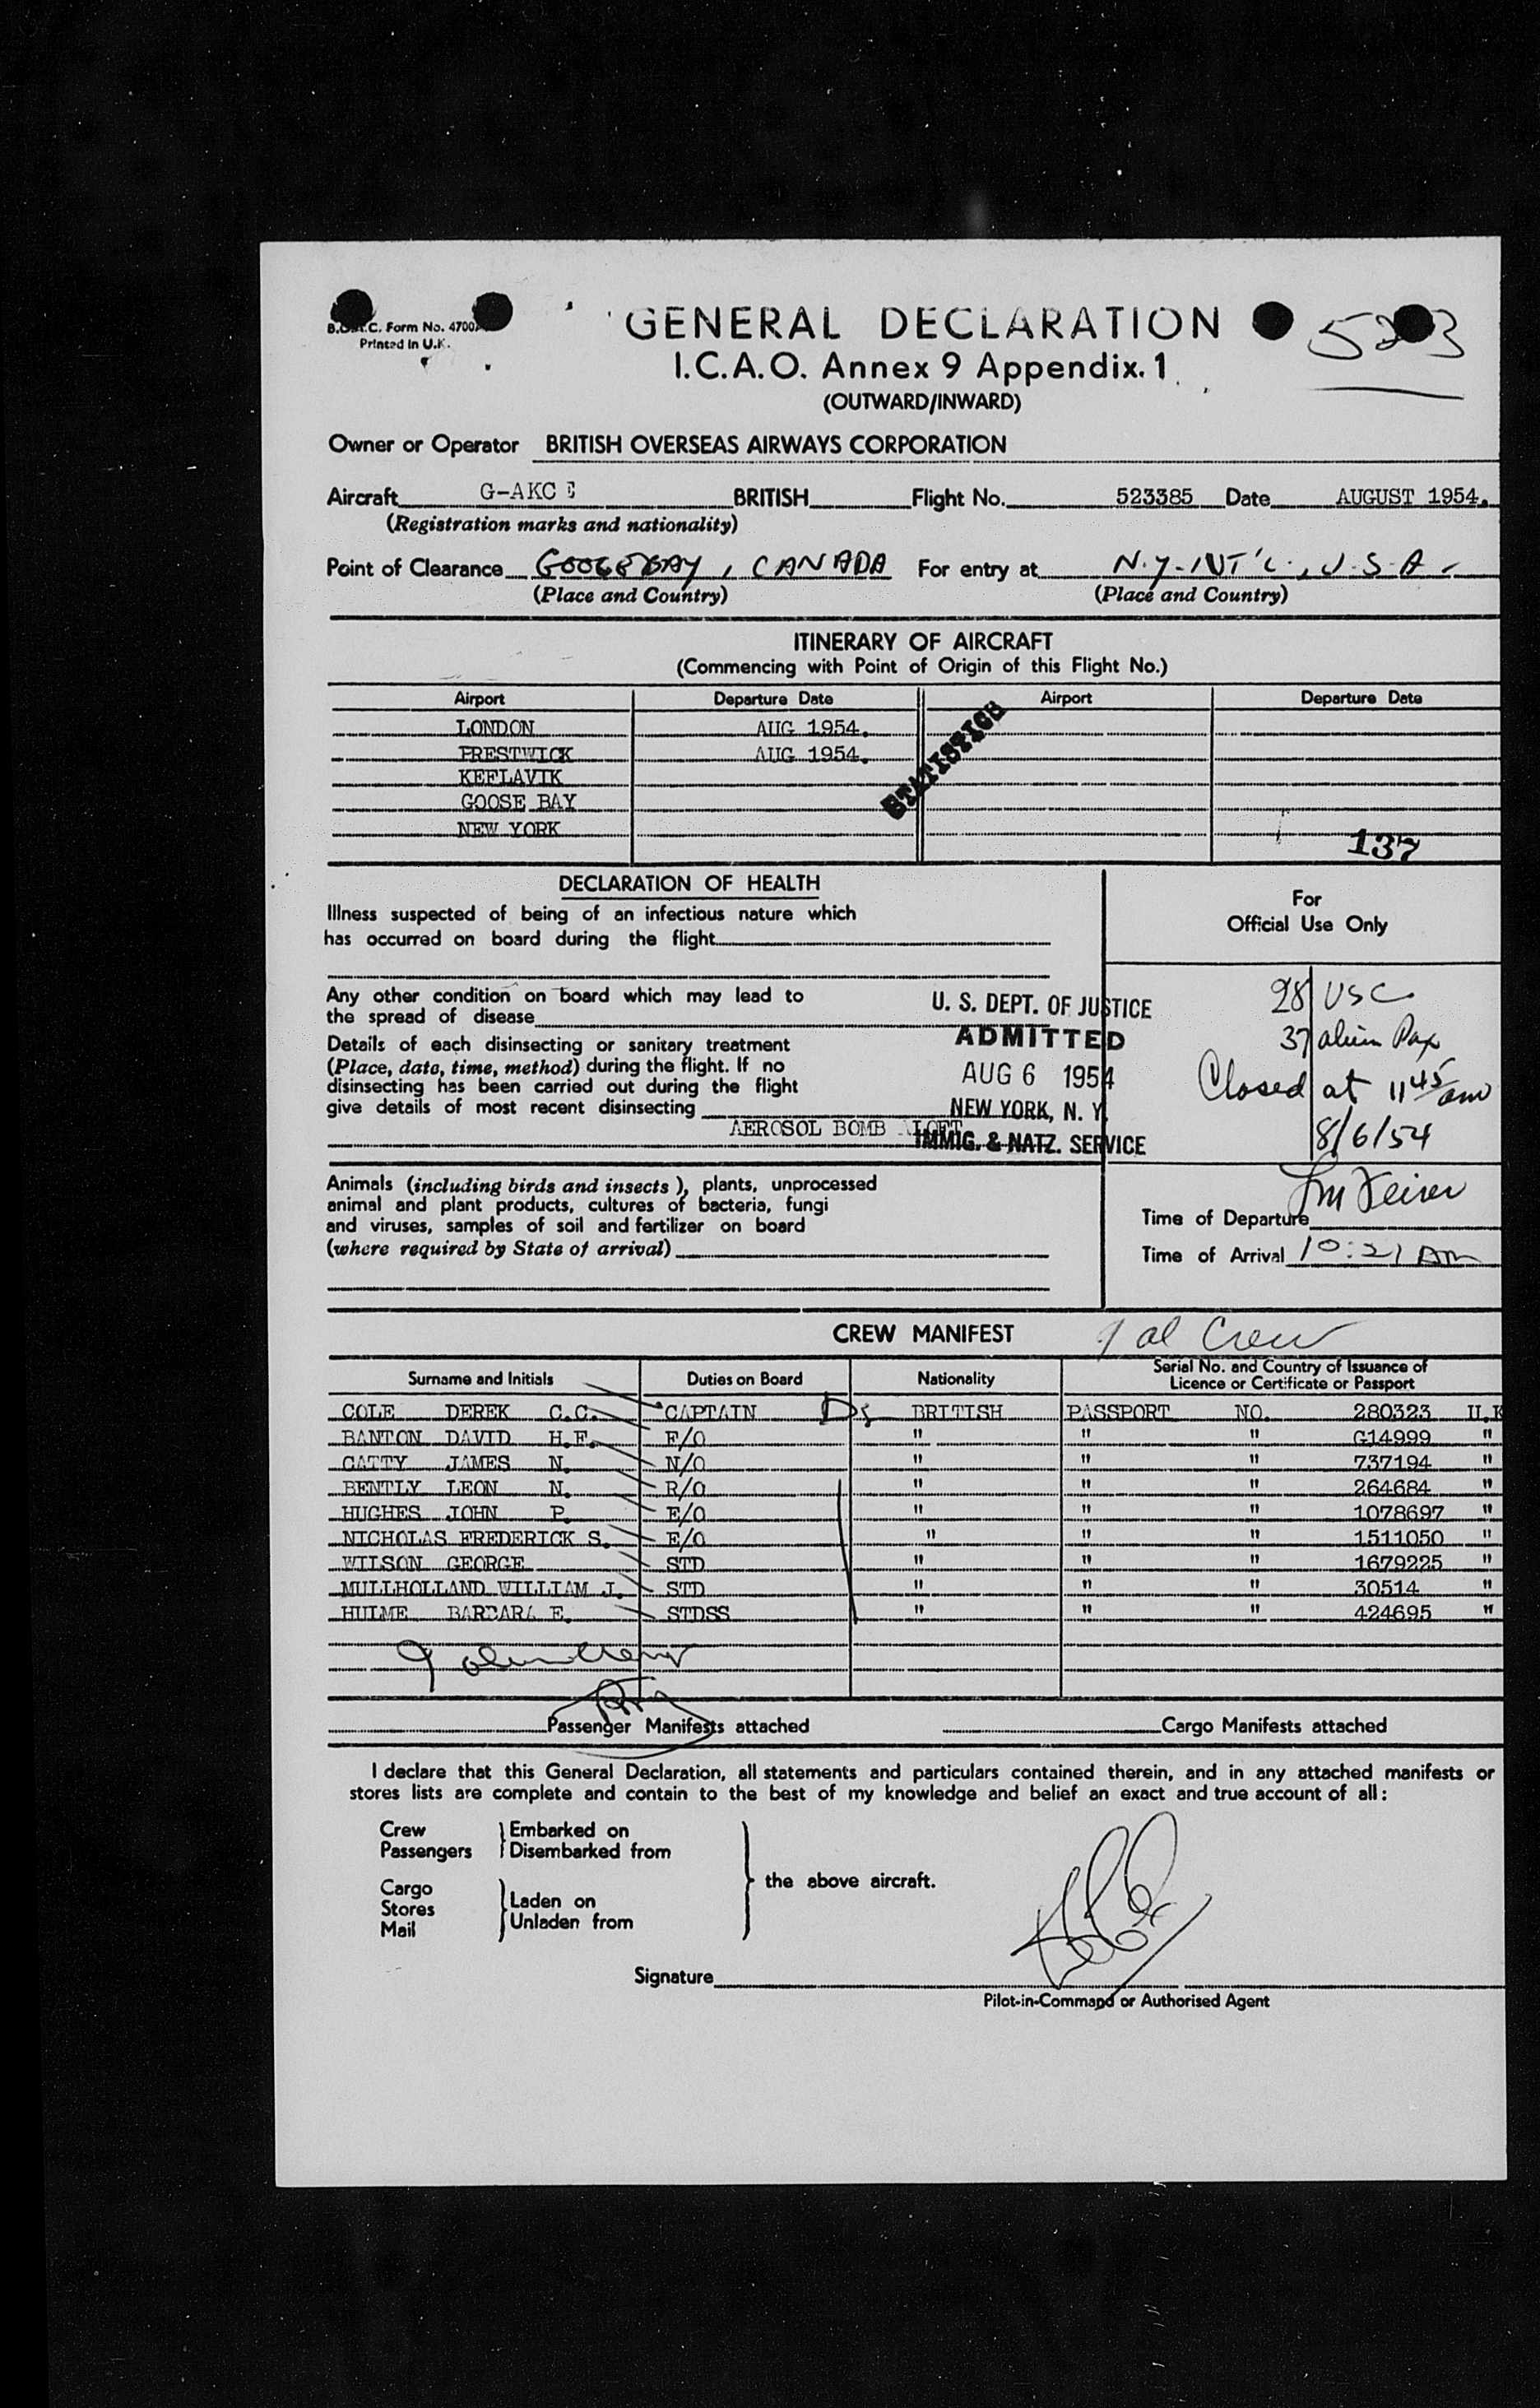 B.O.A.C. Form No. 4700
Printed in U.K.
GENERAL DECLARATION
I.C.A.O. Annex 9 Appendix.1
(OUTWARD/INWARD)
Owner or Operator BRITISH OVERSEAS AIRWAYS CORPORATION
Aircraft G-AKCE BRITISH Flight No. 523385 Date AUGUST 1954.
(Registration marks and nationality)
Point of Clearance GOOSEBAY, CANADA For entry at N.Y. INT'L., U.S.A.
(Place and Country) (Place and Country)
ITINERARY OF AIRCRAFT
(Commencing with Point of Origin of this Flight No.)
Airport Departure Date Airport Departure Date
LONDON AUG 1954.
PRESTWICK AUG 1954.
KEFLAVIK
GOOSE BAY
NEW YORK
STATISTICS
137
DECLARATION OF HEALTH
Illness suspected of being of an infectious nature which
has occurred on board during the flight
Any other condition on board which may lead to
the spread of disease
Details of each disinsecting or sanitary treatment
(Place, date, time, method) during the flight. If no
disinsecting has been carried out during the flight
give details of most recent disinsecting
AEROSOL BOMB ALOFT
U. S. DEPT. OF JUSTICE
ADMITTED
AUG 6 1954
NEW YORK, N. Y.
IMMIG. & NATZ. SERVICE
For
Official Use Only
28 USC
37 alien Pax
Closed at 11 45 am
8/6/54
Animals (including birds and insects), plants, unprocessed
animal and plant products, cultures of bacteria, fungi
and viruses, samples of soil and fertilizer on board
(where required by State of arrival)
Time of Departure
Time of Arrival 10:21 AM
CREW MANIFEST 9 al Crew
Surname and Initials Duties on Board Nationality Serial No. and Country of Issuance of
Licence or Certificate or Passport
COLE DEREK C.C. CAPTAIN BRITISH PASSPORT NO. 280323 U.K
BANTON DAVID H.F. F/O " " " G14999 "
CATTY JAMES N. N/O " " " 737194 "
BENTLY LEON N. R/O " " " 264684 "
HUGHES JOHN P. E/O " " " 1078697 "
NICHOLAS FREDERICK S. E/O " " " 1511050 "
WILSON GEORGE STD " " " 1679225 "
MULLHOLLAND WILLIAM J. STD " " " 30514 "
HULME BARBARA E. STDSS " " " 424695 "
9 alien Crew
Passenger Manifests attached Cargo Manifests attached
I declare that this General Declaration, all statements and particulars contained therein, and in any attached manifests or
stores lists are complete and contain to the best of my knowledge and belief an exact and true account of all:
Crew Embarked on
Passengers Disembarked from
the above aircraft.
Cargo
Stores Laden on
Mail Unladen from
Signature
Pilot-in-Command or Authorised Agent